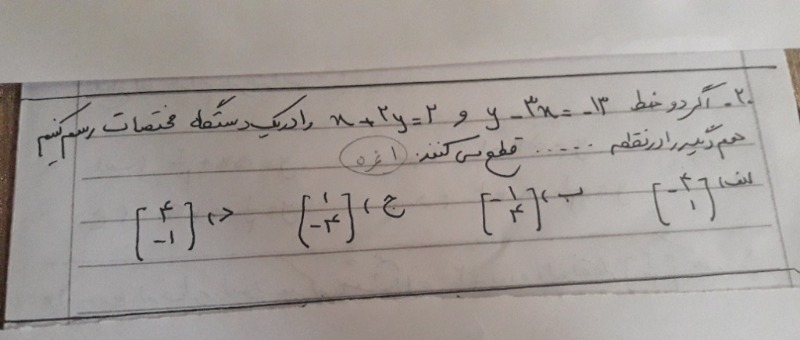 ۲۰- اگر دو خط y - ۳x = -۱۳ و x + ۲y = ۲ را در یک دستگاه مختصات رسم کنیم
همدیگر را در نقطه ..... قطع می کنند. ۱ نمره
الف) [-۴ ۱] ب) [-۱ ۴] ج) [۱ -۴] د) [۴ -۱]